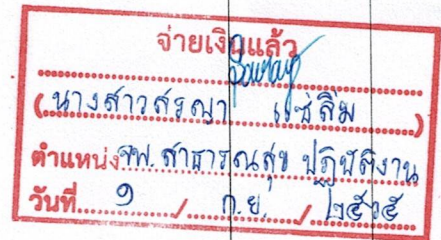 จ่ายเงินแล้ว
(นางสาวสรญา แซ่ลิ่ม)
ตำแหน่ง จพ.สาธารณสุข ปฏิบัติงาน
วันที่ ๑ / ก.ย. / ๒๕๖๕